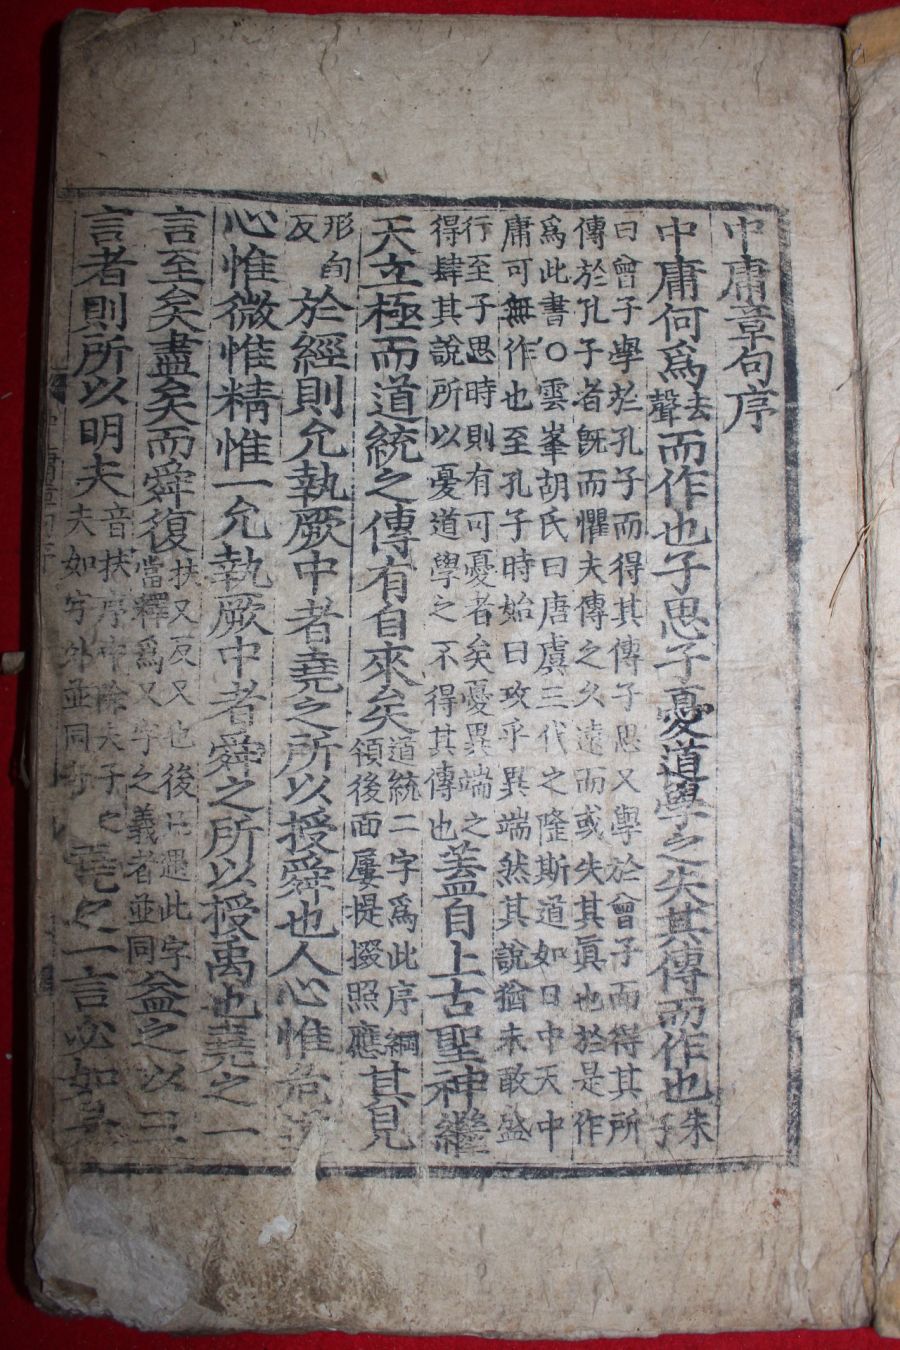 中庸章句序
中庸何爲去聲而作也子思子憂道學之失其傳而作也朱子
曰曾子學於孔子而得其傳子思又學於曾子而得其所
傳於孔子者旣而懼夫傳之久遠而或失其眞也於是作
爲此書○雲峯胡氏曰唐虞三代之隆斯道如日中天中
庸可無作也至孔子時始曰攻乎異端然其說猶未敢盛
行至子思時則有可憂者矣憂異端之
得肆其說所以憂道學之不得其傳也
蓋自上古聖神繼
天立極而道統之傳有自來矣道統二字爲此序綱領後面屢提掇照應其見
形甸反於經則允執厥中者堯之所以授舜也人心惟危道
心惟微惟精惟一允執厥中者舜之所以授禹也堯之一
言至矣盡矣而舜復扶又反又也後凡遇此字當釋爲又字之義者並同益之以三
言者則所以明夫音扶序中除夫子之夫如字外並同堯之一言必如是